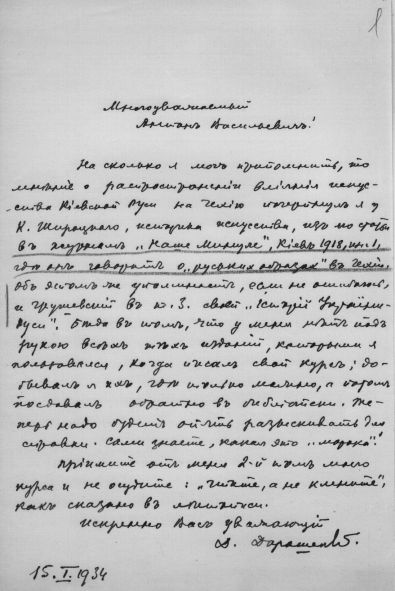 1
Многоуважаемый
Антонъ Васильевичъ!
На сколько я могу припомнить, то
мнѣніе о распространеніи вліянія искус-
ства Кіевской Руси на Чехію почерпнулъ я у
К. Широцкаго, историка искусства, изъ его статьи
въ журналѣ „Наше Минуле", Кіевъ 1918, кн. 1,
гдѣ онъ говоритъ о „руських образах" въ Чехіи.
Объ этомъ же упоминаетъ, если не ошибаюсь,
и Грушевский въ т. 3. своей „Історії України-
Руси". Бѣда въ томъ, что у меня нѣтъ подъ
рукою всѣхъ тѣхъ изданій, которыми я
пользовался, когда писалъ свой курсъ; до-
бывалъ я ихъ, гдѣ только можно, а потомъ
посдавалъ обратно въ библіотеки. Те-
перь надо будетъ опять разыскивать для
справки. Сами знаете, какая это „морока"!
Примите отъ меня 2-й томъ моего
курса и не осудите: „чтите, а не клените",
какъ сказано въ лѣтописи.
Искренно Васъ уважающій
Д. Дорошенко.
15. I. 1934